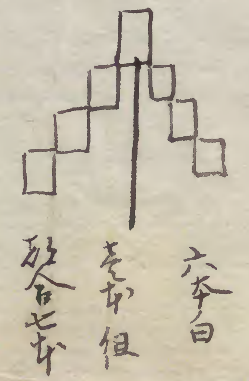 六本白
壱本但
都合七本